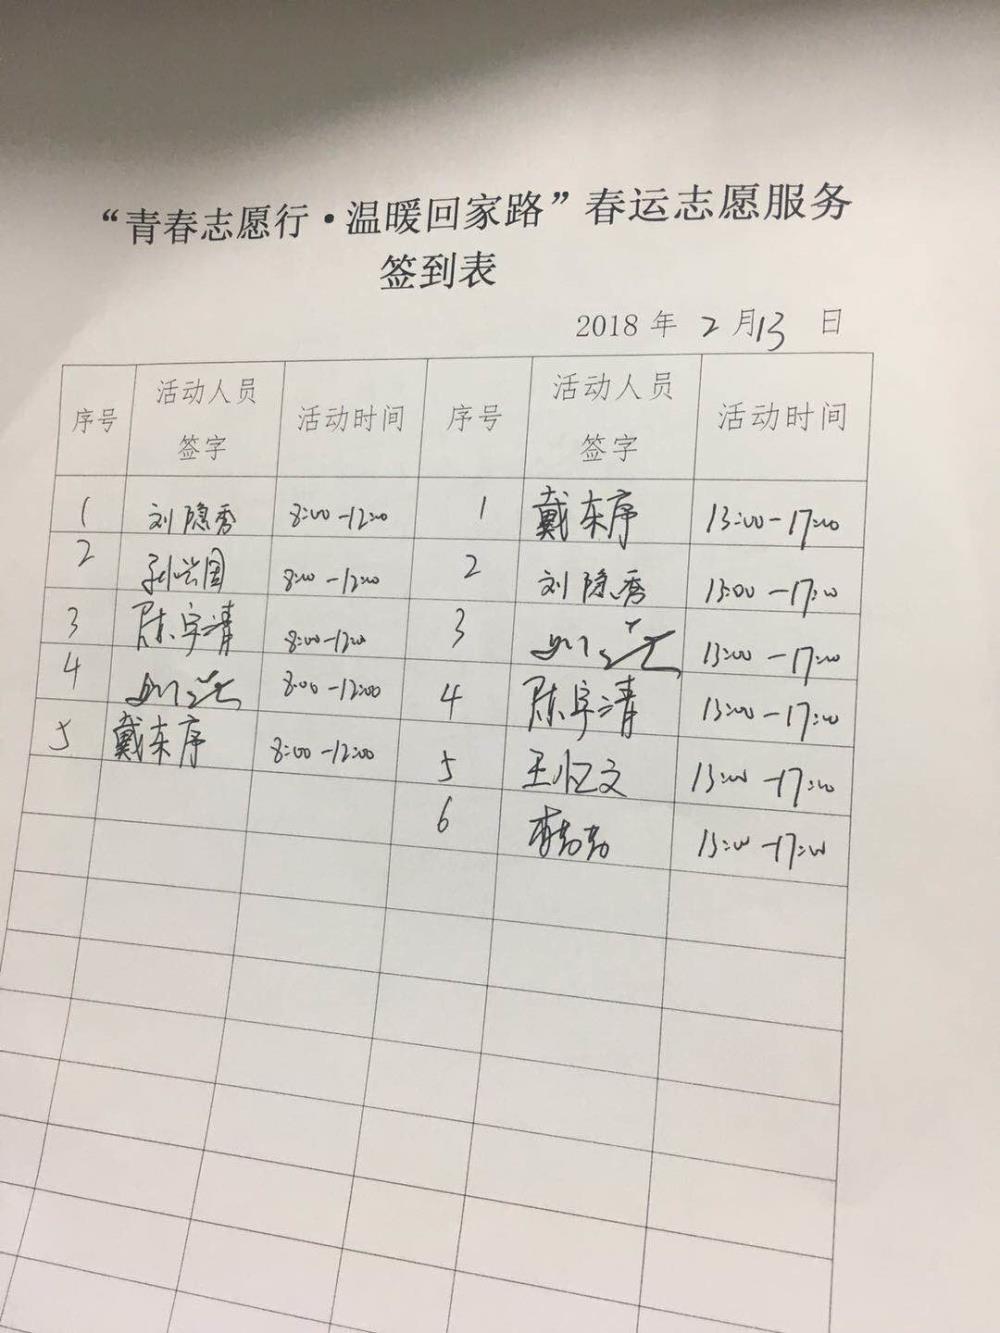 “青春志愿行·温暖回家路”春运志愿服务
签到表
2018 年 2 月 13 日
序号 活动人员签字 活动时间 序号 活动人员签字 活动时间
1 刘隐秀 8:00-12:00 1 戴东序 13:00-17:00
2 孙兴国 8:00-12:00 2 刘隐秀 13:00-17:00
3 陈宇清 8:00-12:00 3 13:00-17:00
4 8:00-12:00 4 陈宇清 13:00-17:00
5 戴东序 8:00-12:00 5 王忆文 13:00-17:00
6 13:00-17:00